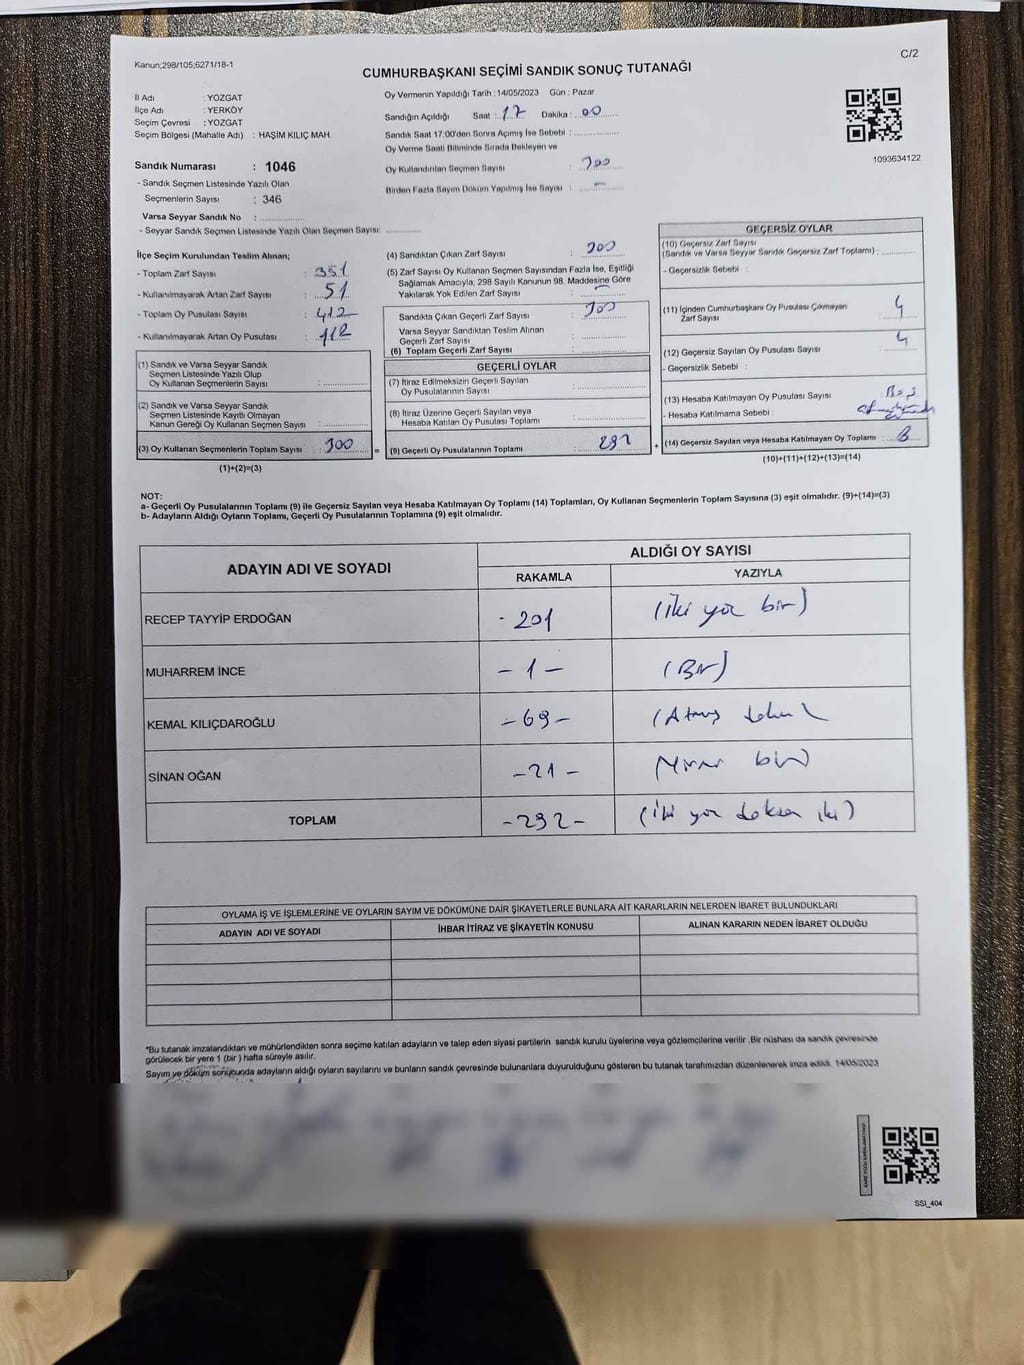 Kanun;298/105;6271/18-1
C/2
CUMHURBAŞKANI SEÇİMİ SANDIK SONUÇ TUTANAĞI
İl Adı : YOZGAT
İlçe Adı : YERKÖY
Seçim Çevresi : YOZGAT
Seçim Bölgesi (Mahalle Adı) : HAŞİM KILIÇ MAH.
Sandık Numarası : 1046
- Sandık Seçmen Listesinde Yazılı Olan
Seçmenlerin Sayısı : 346
Varsa Seyyar Sandık No :
- Seyyar Sandık Seçmen Listesinde Yazılı Olan Seçmen Sayısı:
Oy Vermenin Yapıldığı Tarih :14/05/2023 Gün : Pazar
Sandığın Açıldığı Saat : 17 Dakika : 00
Sandık Saat 17:00'den Sonra Açmış İse Sebebi :
Oy Verme Saati Bitiminde Sırada Bekleyen ve
Oy Kullandırılan Seçmen Sayısı : 300
Birden Fazla Sayım Döküm Yapılmış İse Sayısı : -
1093634122
İlçe Seçim Kurulundan Teslim Alınan;
- Toplam Zarf Sayısı : 351
- Kullanılmayarak Artan Zarf Sayısı : 51
- Toplam Oy Pusulası Sayısı : 412
- Kullanılmayarak Artan Oy Pusulası : 112
(1) Sandık ve Varsa Seyyar Sandık
Seçmen Listesinde Yazılı Olup
Oy Kullanan Seçmenlerin Sayısı :
(2) Sandık ve Varsa Seyyar Sandık
Seçmen Listesinde Kayıtlı Olmayan
Kanun Gereği Oy Kullanan Seçmen Sayısı :
(3) Oy Kullanan Seçmenlerin Toplam Sayısı : 300
(1)+(2)=(3)
(4) Sandıktan Çıkan Zarf Sayısı : 300
(5) Zarf Sayısı Oy Kullanan Seçmen Sayısından Fazla İse, Eşitliği
Sağlamak Amacıyla; 298 Sayılı Kanunun 98. Maddesine Göre
Yakılarak Yok Edilen Zarf Sayısı :
Sandıkta Çıkan Geçerli Zarf Sayısı : 300
Varsa Seyyar Sandıktan Teslim Alınan
Geçerli Zarf Sayısı :
(6) Toplam Geçerli Zarf Sayısı :
GEÇERLİ OYLAR
(7) İtiraz Edilmeksizin Geçerli Sayılan
Oy Pusulalarının Sayısı :
(8) İtiraz Üzerine Geçerli Sayılan veya
Hesaba Katılan Oy Pusulası Toplamı :
(9) Geçerli Oy Pusulalarının Toplamı : 292
GEÇERSİZ OYLAR
(10) Geçersiz Zarf Sayısı
(Sandık ve Varsa Seyyar Sandık Geçersiz Zarf Toplamı) :
- Geçersizlik Sebebi :
(11) İçinden Cumhurbaşkanı Oy Pusulası Çıkmayan
Zarf Sayısı : 4
(12) Geçersiz Sayılan Oy Pusulası Sayısı : 4
- Geçersizlik Sebebi :
(13) Hesaba Katılmayan Oy Pusulası Sayısı : Boş
- Hesaba Katılmama Sebebi :
(14) Geçersiz Sayılan veya Hesaba Katılmayan Oy Toplamı : 8
(10)+(11)+(12)+(13)=(14)
NOT:
a- Geçerli Oy Pusulalarının Toplamı (9) ile Geçersiz Sayılan veya Hesaba Katılmayan Oy Toplamı (14) Toplamları, Oy Kullanan Seçmenlerin Toplam Sayısına (3) eşit olmalıdır. (9)+(14)=(3)
b- Adayların Aldığı Oyların Toplamı, Geçerli Oy Pusulalarının Toplamına (9) eşit olmalıdır.
ADAYIN ADI VE SOYADI
ALDIĞI OY SAYISI
RAKAMLA YAZIYLA
RECEP TAYYİP ERDOĞAN - 201 (İki yüz bir)
MUHARREM İNCE - 1 - (Bir)
KEMAL KILIÇDAROĞLU - 69 - (Atmış dokuz
SİNAN OĞAN - 21 - Yirmi bir)
TOPLAM - 292 - (İki yüz doksan iki)
OYLAMA İŞ VE İŞLEMLERİNE VE OYLARIN SAYIM VE DÖKÜMÜNE DAİR ŞİKAYETLERLE BUNLARA AİT KARARLARIN NELERDEN İBARET BULUNDUKLARI
ADAYIN ADI VE SOYADI İHBAR İTİRAZ VE ŞİKAYETİN KONUSU ALINAN KARARIN NEDEN İBARET OLDUĞU
*Bu tutanak imzalandıktan ve mühürlendikten sonra seçime katılan adayların ve talep eden siyasi partilerin sandık kurulu üyelerine veya gözlemcilerine verilir .Bir nüshası da sandık çevresinde
görülecek bir yere 1 (bir ) hafta süreyle asılır.
Sayım ve döküm sonucunda adayların aldığı oyların sayılarını ve bunların sandık çevresinde bulunanlara duyurulduğunu gösteren bu tutanak tarafımızdan düzenlenerek imza edildi. 14/05/2023
SSI_404